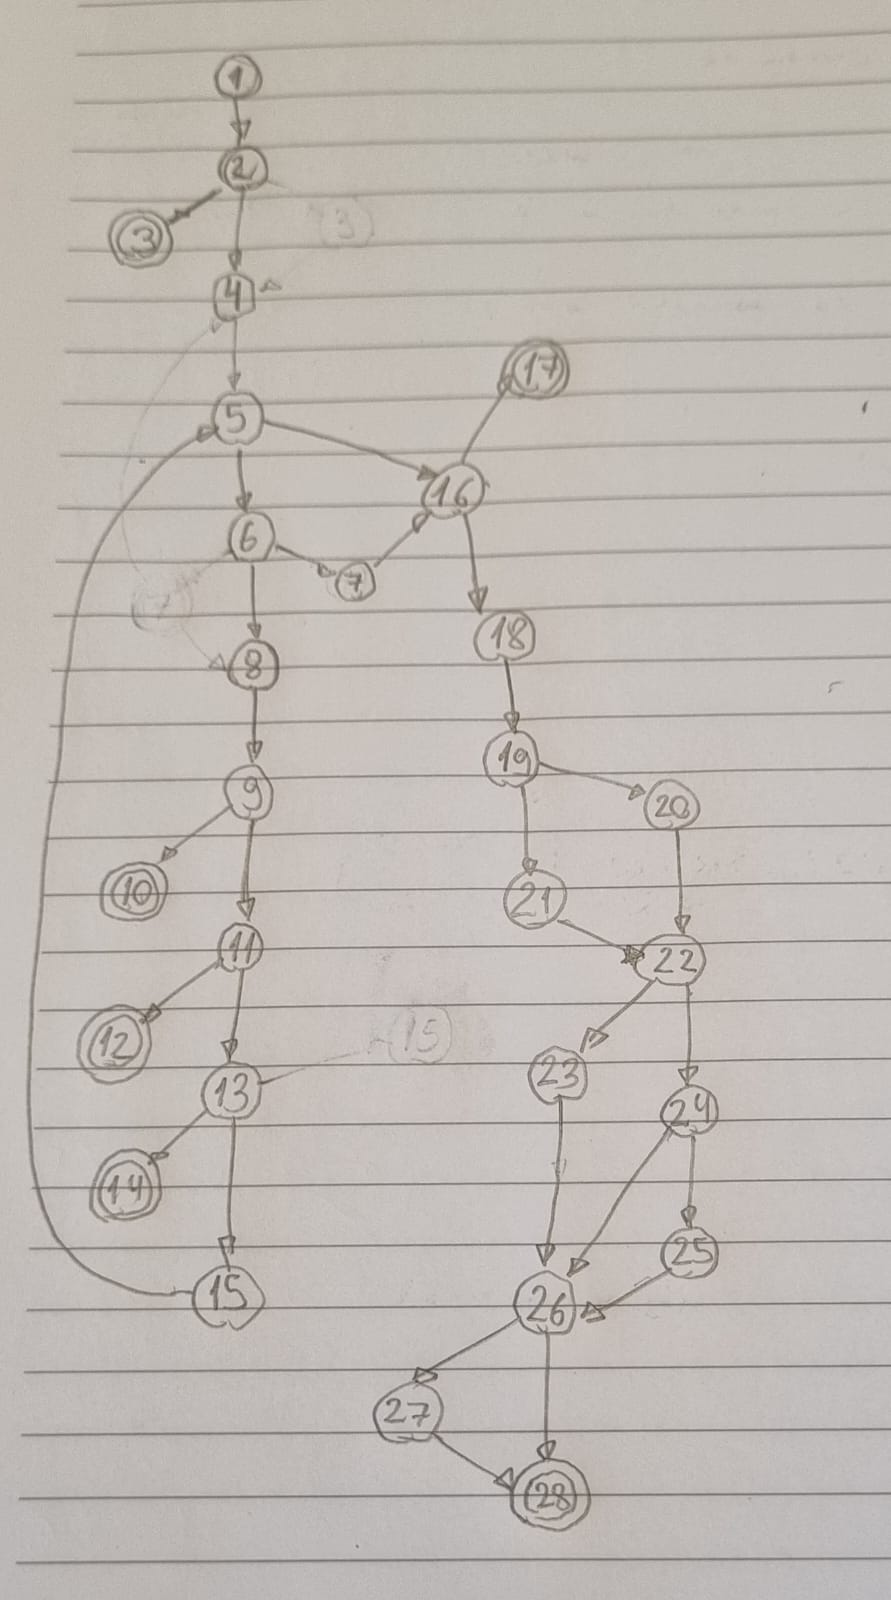 1
2
3
3
4
17
5
16
6
7
18
8
19
9
20
10
21
11
22
15
12
23
13
24
14
25
15
26
27
28